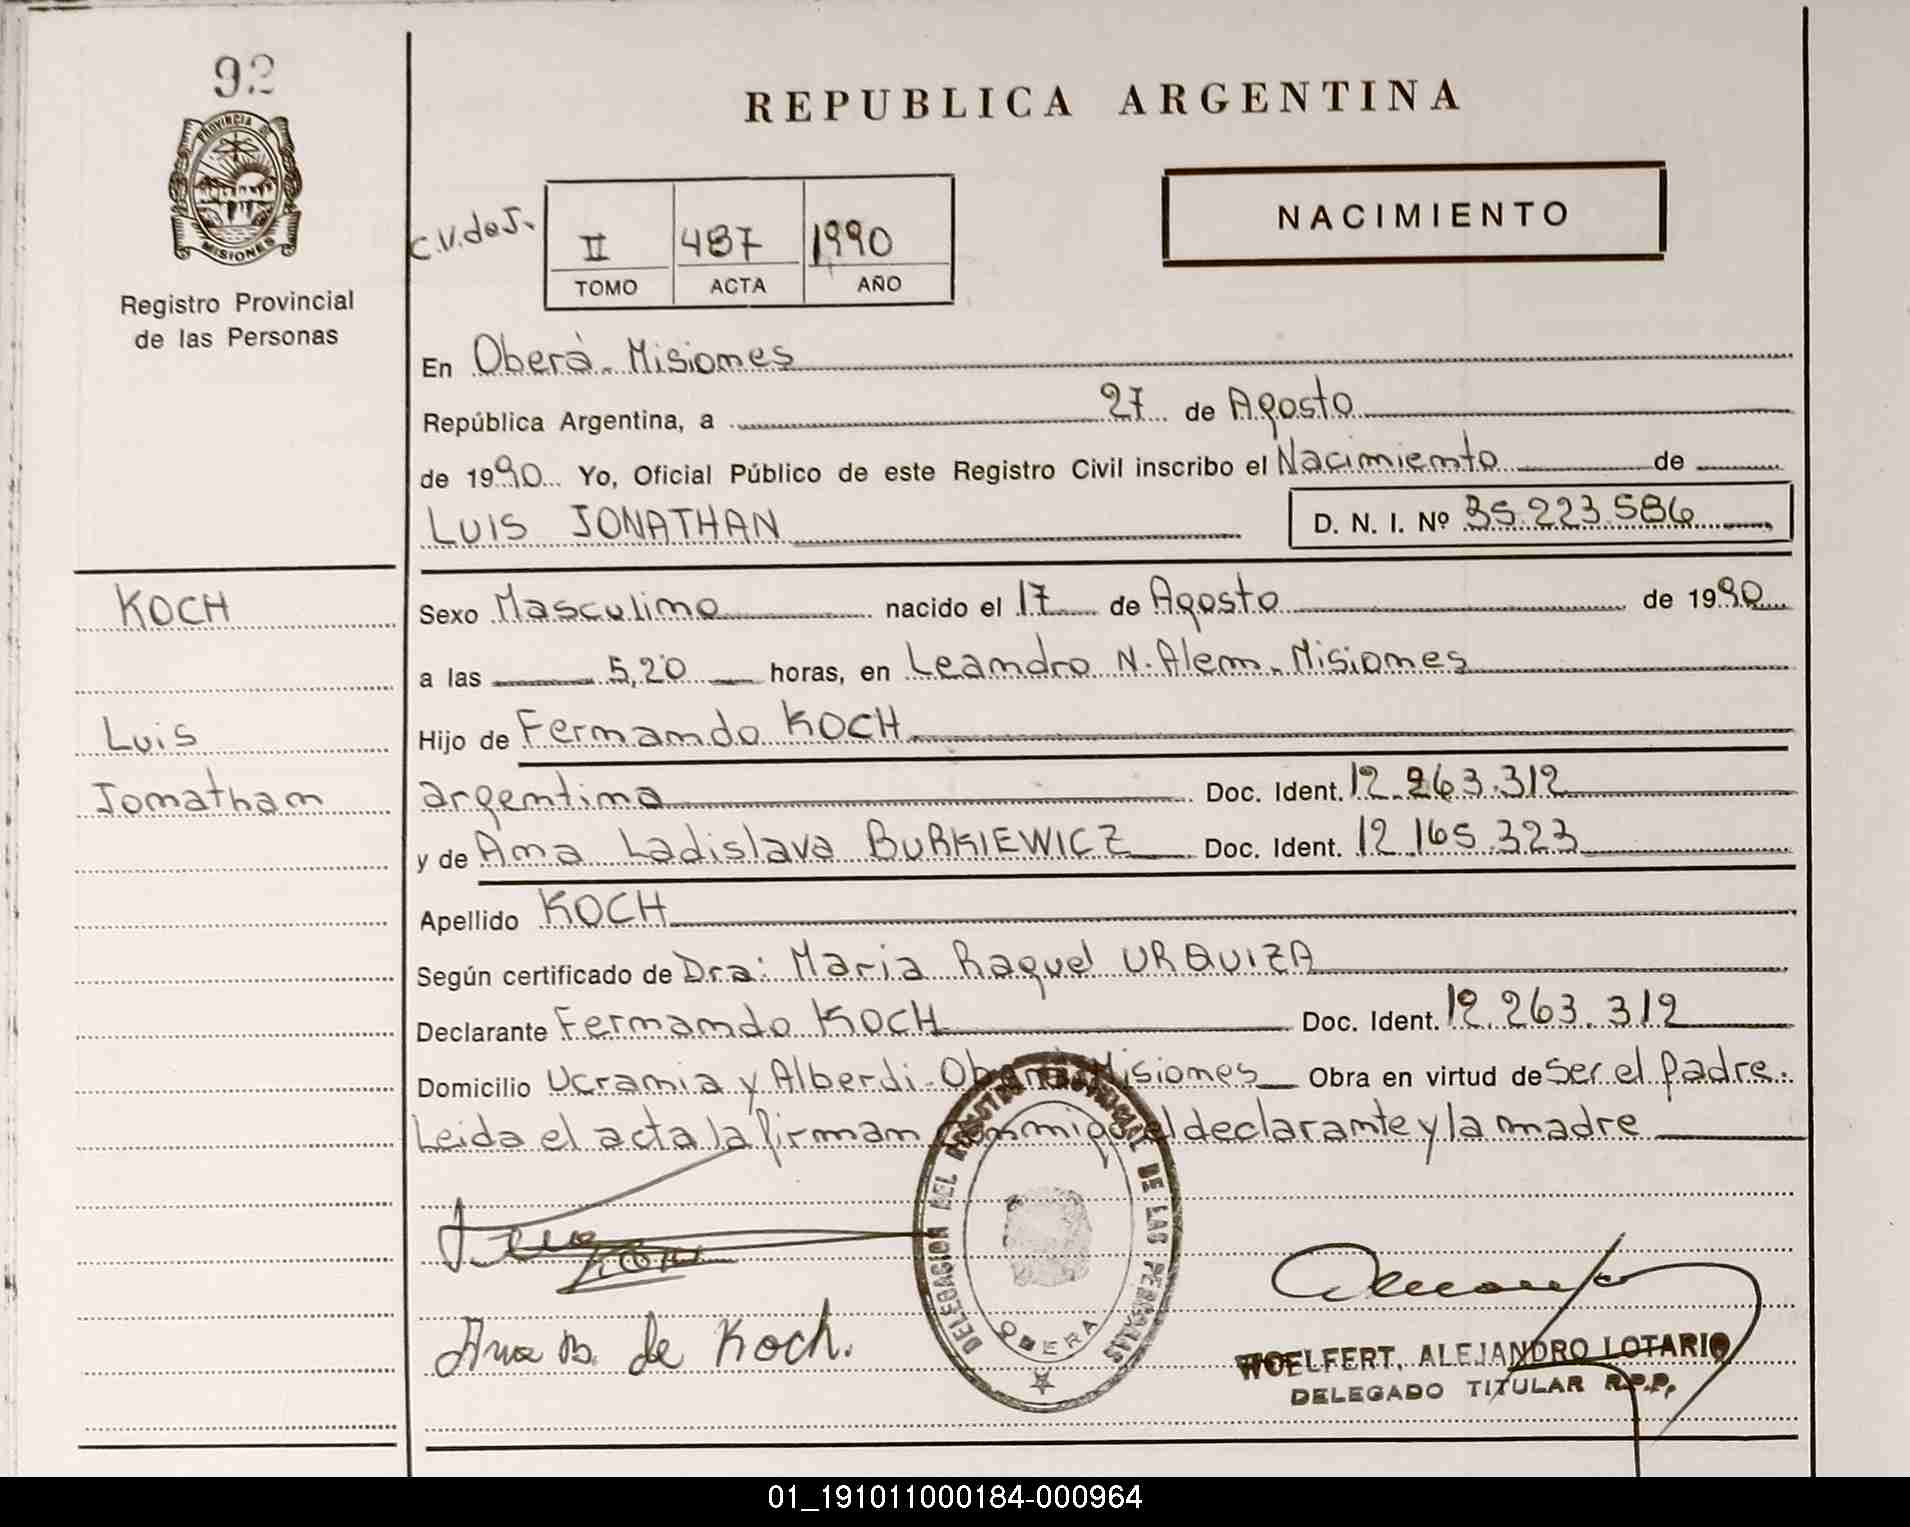 92
PROVINCIA DE
MISIONES
Registro Provincial
de las Personas
KOCH
Luis
Jonathan
REPUBLICA ARGENTINA
NACIMIENTO
C.V. de J.
II 487 1990
TOMO ACTA AÑO
En Oberá. Misiones
República Argentina, a 27 de Agosto
de 1990 Yo, Oficial Público de este Registro Civil inscribo el Nacimiento de
LUIS JONATHAN D. N. I. Nº 35.223.586
Sexo Masculino nacido el 17 de Agosto de 1990
a las 5,20 horas, en Leandro N. Alem. Misiones
Hijo de Fernando KOCH
argentino Doc. Ident. 12.263.312
y de Ana Ladislava BURKIEWICZ Doc. Ident. 12.165.323
Apellido KOCH
Según certificado de Dra: Maria Raquel URQUIZA
Declarante Fernando KOCH Doc. Ident. 12.263.312
Domicilio Ucrania y Alberdi. Oberá Misiones Obra en virtud de Ser el padre.
Leida el acta la firman conmigo el declarante y la madre
DELEGACION DEL REGISTRO PROVINCIAL DE LAS PERSONAS
OBERA
Ana B. de Koch.
WOELFERT, ALEJANDRO LOTARIO
DELEGADO TITULAR R.P.P.
01_191011000184-000964